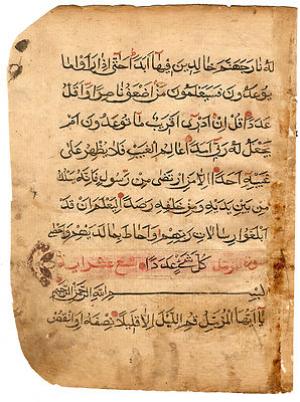 له نار جهنم خالدين فيها ابدا حتى اذا راوا ما
يوعدون فسيعلمون من اضعف ناصرا واقل
عددا قل ان ادرى اقريب ما توعدون ام
يجعل له ربى امدا عالم الغيب فلا يظهر على
غيبه احدا الا من ارتضى من رسول فانه يسلك
من بين يديه ومن خلفه رصدا ليعلم ان قد
ابلغوا رسالات ربهم واحاط بما لديهم واحصى
كل شىء عددا
بسم الله الرحمن الرحيم
يا ايها المزمل قم الليل الا قليلا نصفه او انقص